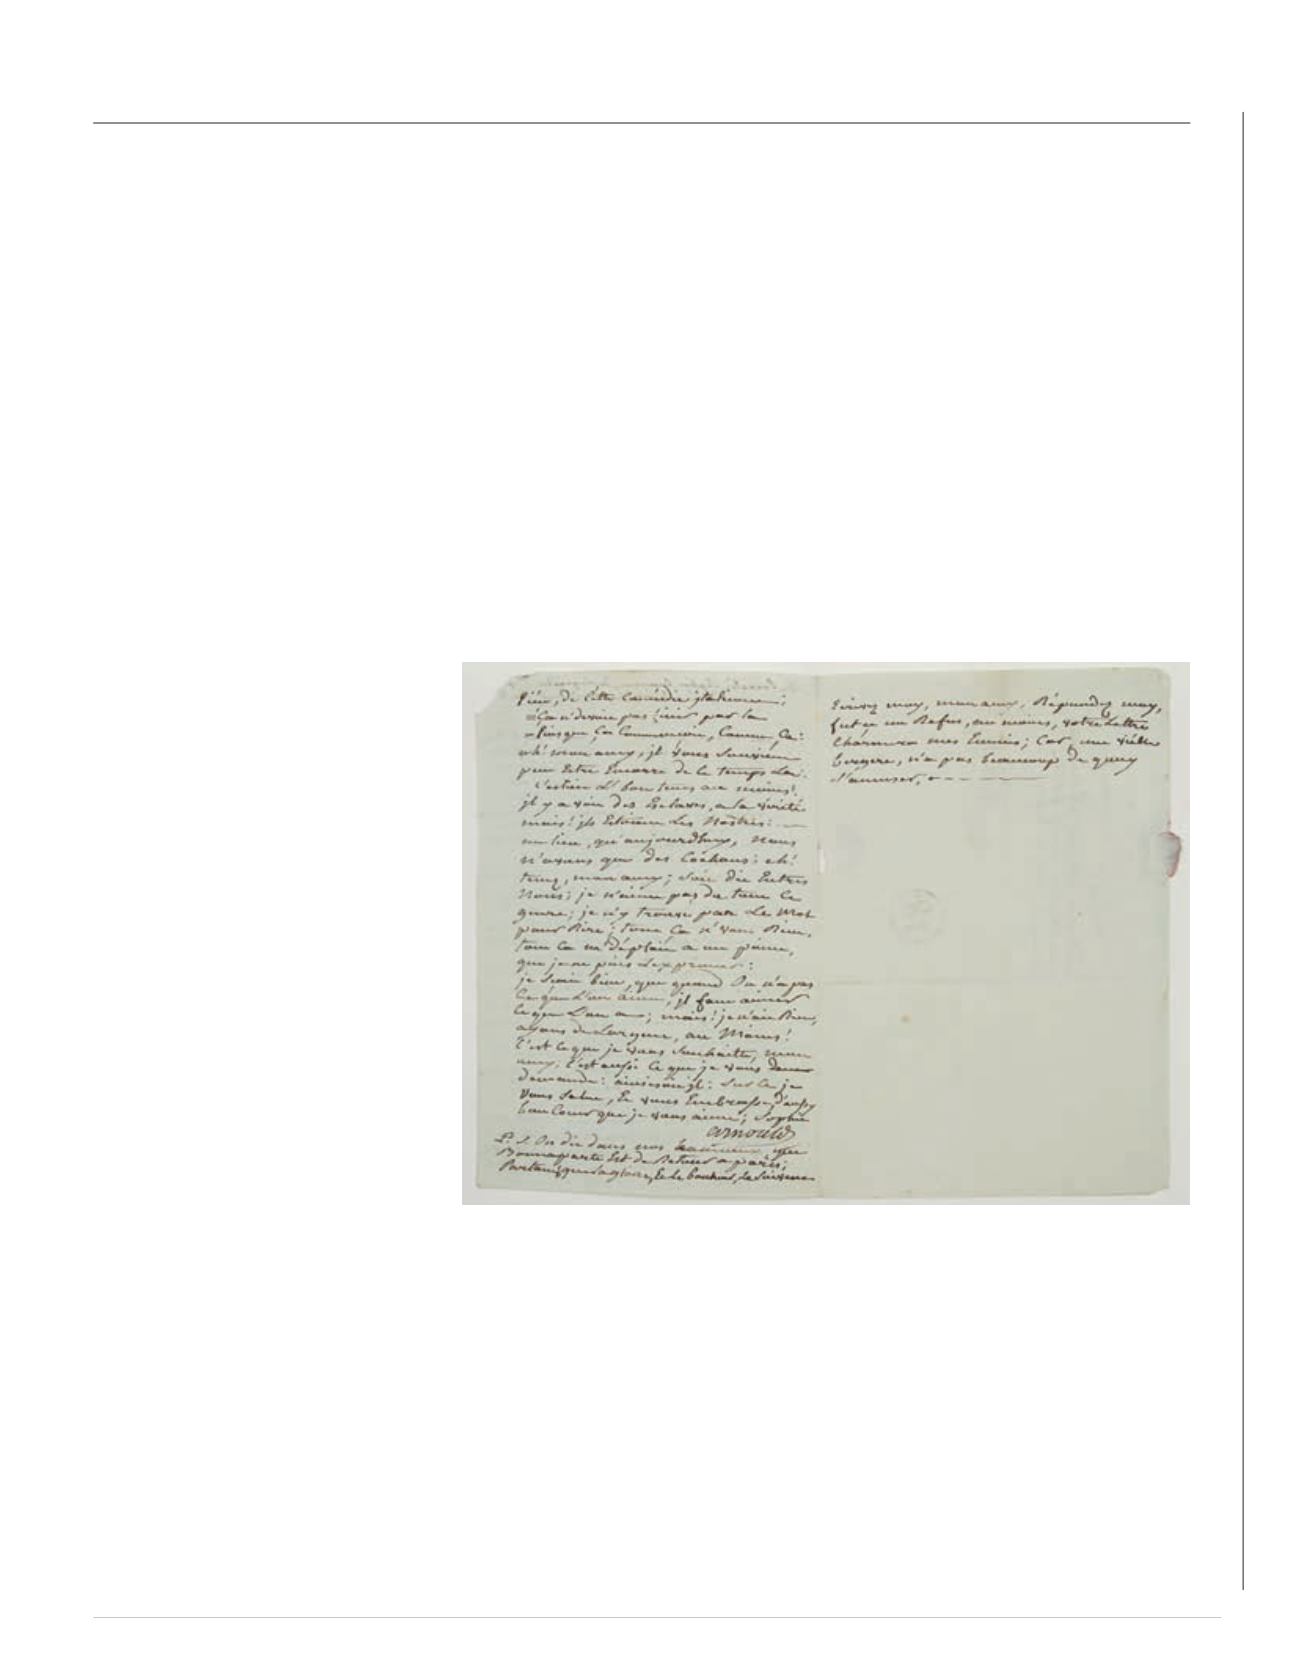 pièce, de cette Comédie jtalienne;
= Ça n'devoit pas finir par la
= Puisque Ça Commençoit, Comme Ça:
eh! mon amy, jl vous Souvient
peut Estre Encorre de ce temps La.
C'estoit L' bon tems
jl y avoit des Esclaves, a la vérité
mais! jls Estoient Les Nostres:
au lieu, qu'aujourdhuy, Nous
n'avons que des Cochons; eh!
tenés, mon amy; Soit dit Entres
Nous; je n'aime pas du tout Ce
genre; je n'y trouve pas Le Mot
pour Rire; tout Ça n' vaut Rien,
tout Ça me déplait a un point,
que je ne puis L'exprimer:
je Scait bien, que quand On n'a pas
Ce que L'on aime, jl faut aimer
Ce que L'on a; mais! je n'ai Rien,
ayons de L'argent, au Moins!
C'est Ce que je vous Souhaitte, mon
amy; C'est aussi Ce que je vous
demande: ainsisoitjl: Sur Ce je
Vous Salue, Et vous Embrasse, d'aussy
bon Coeur que je vous aime; Sophie
arnould
P. S. On dit dans nos hameaux que
Bonnaparte Est de Retour a paris;
Partout, que La gloire, Et Le bonheur, Le Suivent
Ecrivez moy, mon amy, Répondez moy,
fut ce un Refus, au moins, votre Lettre
Charmera mes Ennuis; Car, une vielle
bergere, n'a pas beaucoup de quoy
S'amuser,